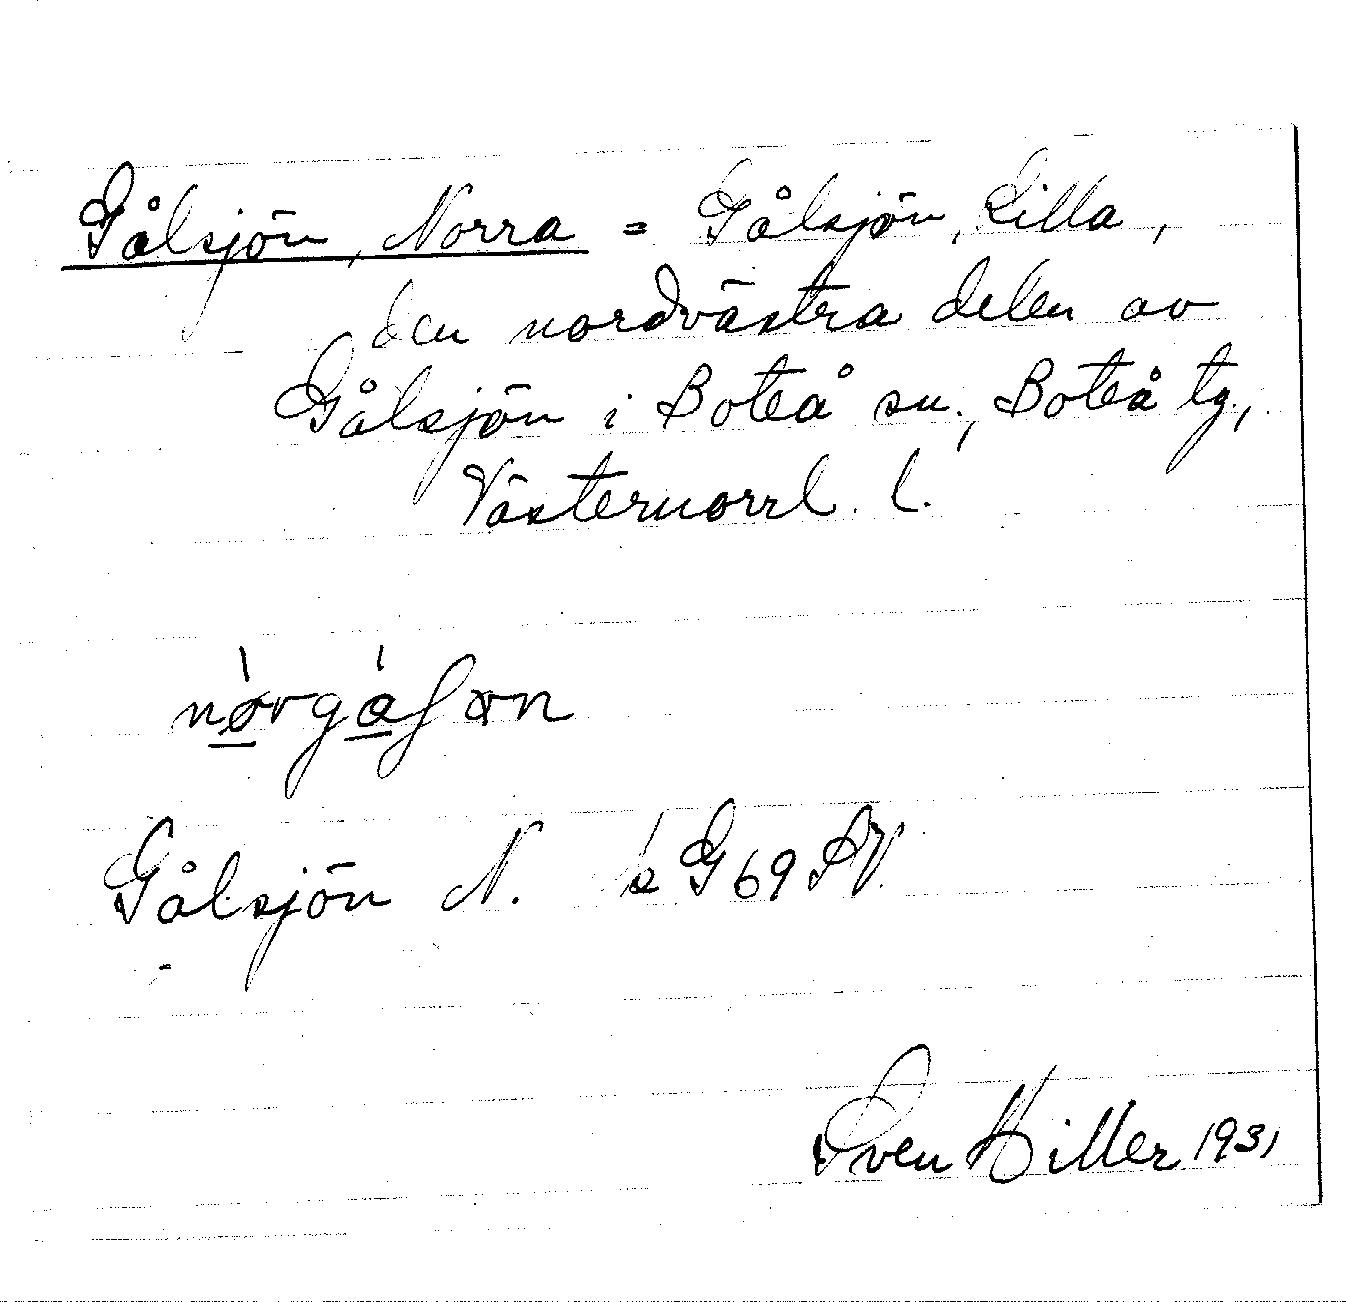 Gålsjön, Norra = Gålsjön, Lilla,
den nordvästra delen av
Gålsjön i Boteå sn., Boteå tg.,
Västernorrl. l.
Gålsjön N. G 69 SV
Sven Hiller 1931